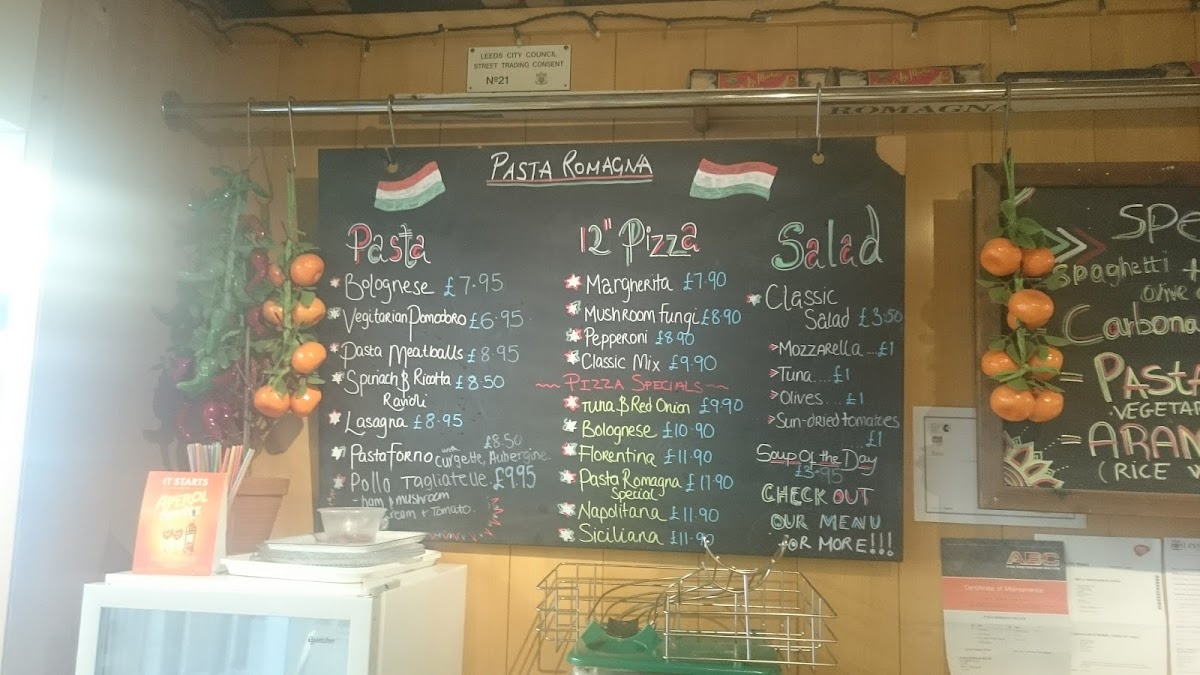 LEEDS CITY COUNCIL
STREET TRADING CONSENT
Nº21
ROMAGNA
PASTA ROMAGNA
Pasta
Bolognese £7.95
Vegitarian Pomodoro £6.95
Pasta Meatballs £8.95
Spinach & Ricotta £8.50
Ravioli
Lasagna £8.95
Pasta Forno with Curgette, Aubergine £8.50
Pollo Tagliatelle £9.95
- ham & mushroom
cream + Tomato.
12" Pizza
Margherita £7.90
Mushroom Fungi £8.90
Pepperoni £8.90
Classic Mix £9.90
PIZZA SPECIALS
Tuna & Red Onion £9.90
Bolognese £10.90
Florentina £11.90
Pasta Romagna £11.90
Special
Napolitana £11.90
Siciliana £11.90
Salad
Classic
Salad £3.50
Mozzarella ....£1
Tuna....£1
Olives....£1
Sun-dried tomatoes
£1
Soup Of the Day
£3.95
CHECK OUT
OUR MENU
FOR MORE!!!
SPE
Spaghetti +
olive
Carbona
= PASTA
VEGETAR
= ARAN
(RICE
IT STARTS
APEROL
ABC
Certificate of Maintenance